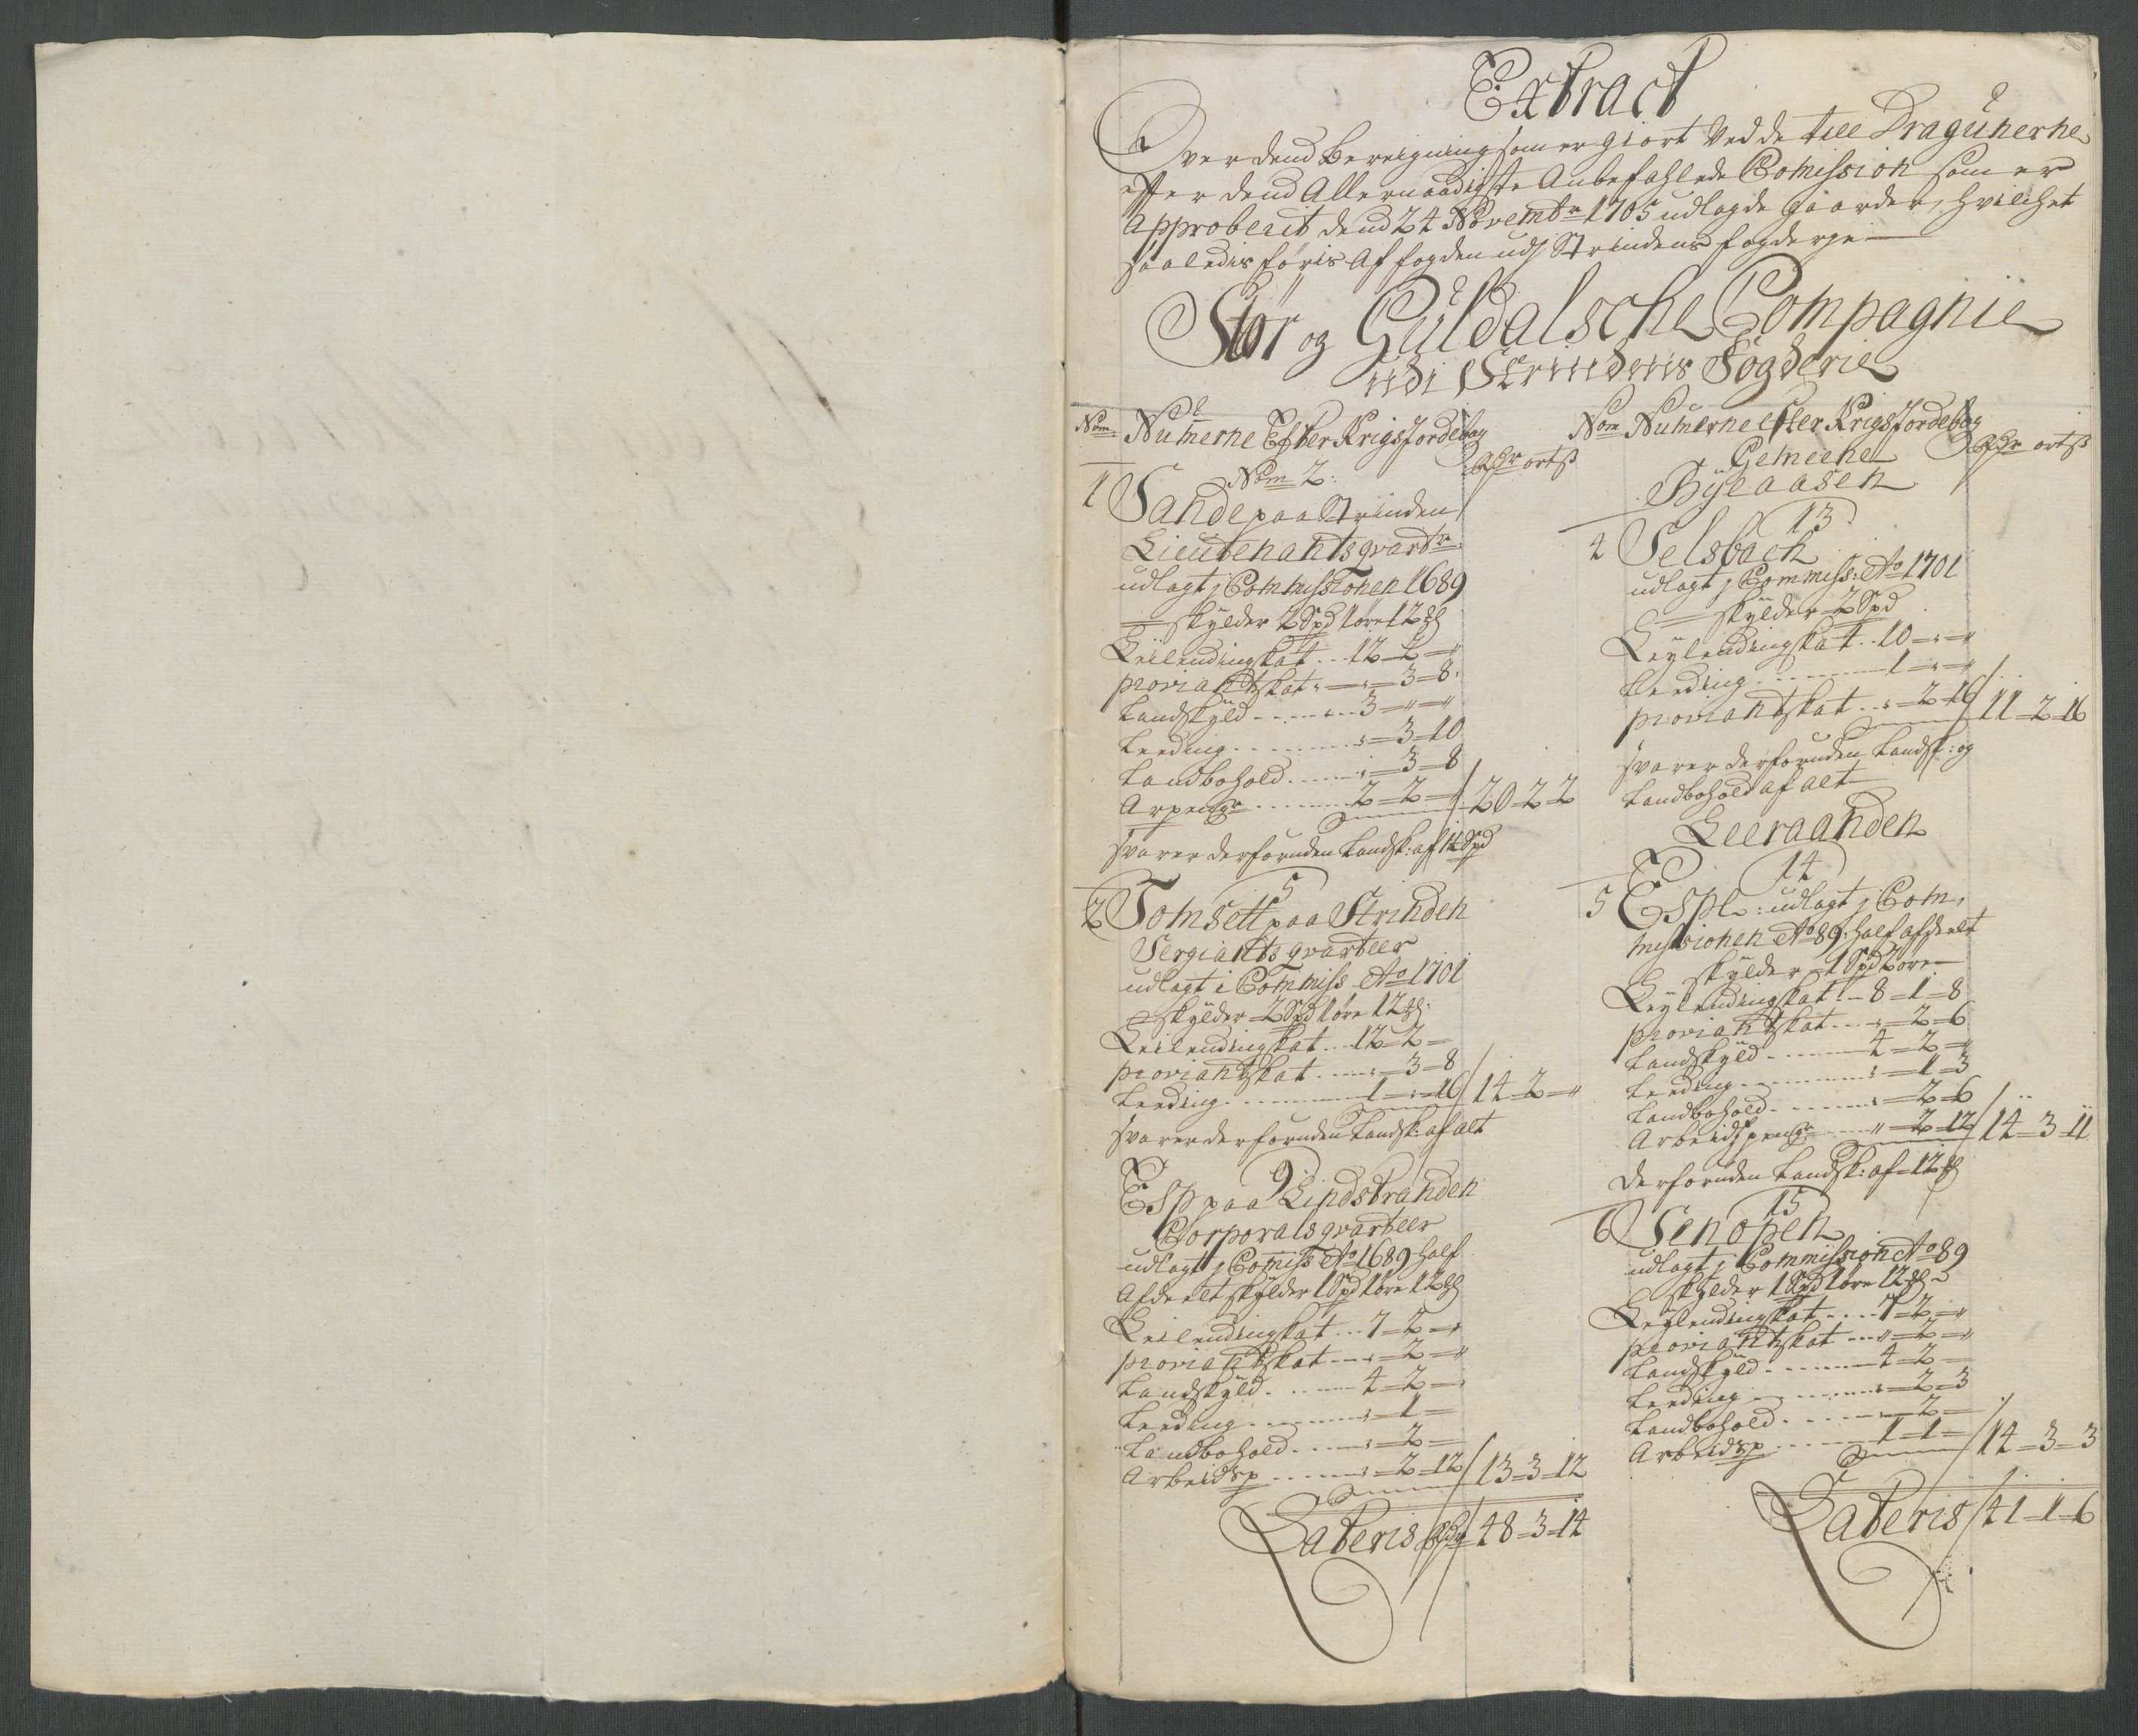 Extract
Over dend Bereigning som er giort Ved de till Dragunerne
effter dend Allernaadigste Anbefahlede Comission som er
Approberit dend 24 Novembr 1705 udlagde gaarder, hvilchet
saaledis føris Af fogden udj Strindens fogderje
Stør og Guldalsche Compagnie
udi Strindens Fogderie
Nom: Numerne Efter Krigs Jordebog
Rdr ort ß
Nom 2:
1 Sande paa Strinden
Lieutenants qvartr:
udlagt j Commissionen 1689
skylder 2 Spd 1 øre 12
Leilendingskat .. 12 - 2 - "
proviantskat " - 3 - 8
Landskyld ...... 3 - " - "
Leeding ........ " - 3 - 10
Landbohold ..... " - 3 - 8
Arpengr ........ 2 - 2 - " / 20 - 2 - 2
svarer derforuden Landsk: af 1½ Spd
5
2 Tomsett paa Strinden
Sergiants qvarteer
udlagt i Commiss Ao 1701
skylder 2 Spd 1 øre 12
Leilendingskat .. 12 - 2 -
proviantskat .... " - 3 - 8
Leeding ......... 1 - " - 16 / 14 - 2 - "
svarer derforuden Landsk: af alt
9
Esp paa Lindstranden
Corporals qvarteer
udlagt j Comiss Ao 1689 half
Afdeelt skylder 1 Spd 1 øre 12
Leilendingskat ... 7 - 2 - "
proviantskat ... " - 2 - "
Landskyld ...... 4 - 2 - "
Leeding ........ " - 1 -
Landbohold ..... " - 2 -
Arbeidsp ....... " - 2 - 12 / 13 - 3 - 12
Lateris Rdr / 48 - 3 - 14
Nom Numerne efter Krigs Jordebog
Gemeene Rdr ort ß
Byeaasen
13
4 Selsbach
udlagt j Commiss: Ao 1701
skylder 2 Spd
Leylendingskat .. 10 - " - "
Leeding ......... 1 - " - "
proviantskat .. " - 2 - 16 / 11 - 2 - 16
svarer derforuden Landsk: og
Landbohold af alt
Leeraanden
14
5 Espe: udlagt j Com,
missionen Ao 89: half afdeelt
skylder 1 Spd 2 øre
Leylendingskat .. 8 - 1 - 8
proviantskat .... " - 2 - 6
Landskyld ....... 4 - 2 - "
Leeding ......... " - 1 - 3
Landbohold ...... " - 2 - 6
Arbeidspengr .... " - 2 - 12 / 14 - 3 - 11
derforuden Landsk: af 12
15
6 Senopen
udlagt j Commission Ao 89
skylder 1 Spd 1 øre 12
Leylendingskat .... 7 - 2 - "
proviantskat ... " - 2 - "
Landskyld ...... 4 - 2 -
Leeding ........ " - 2 - 3
Landbohold ..... " - 2 -
Arbeidsp ....... 1 - 1 - / 14 - 3 - 3
Lateris / 41 - 1 - 6